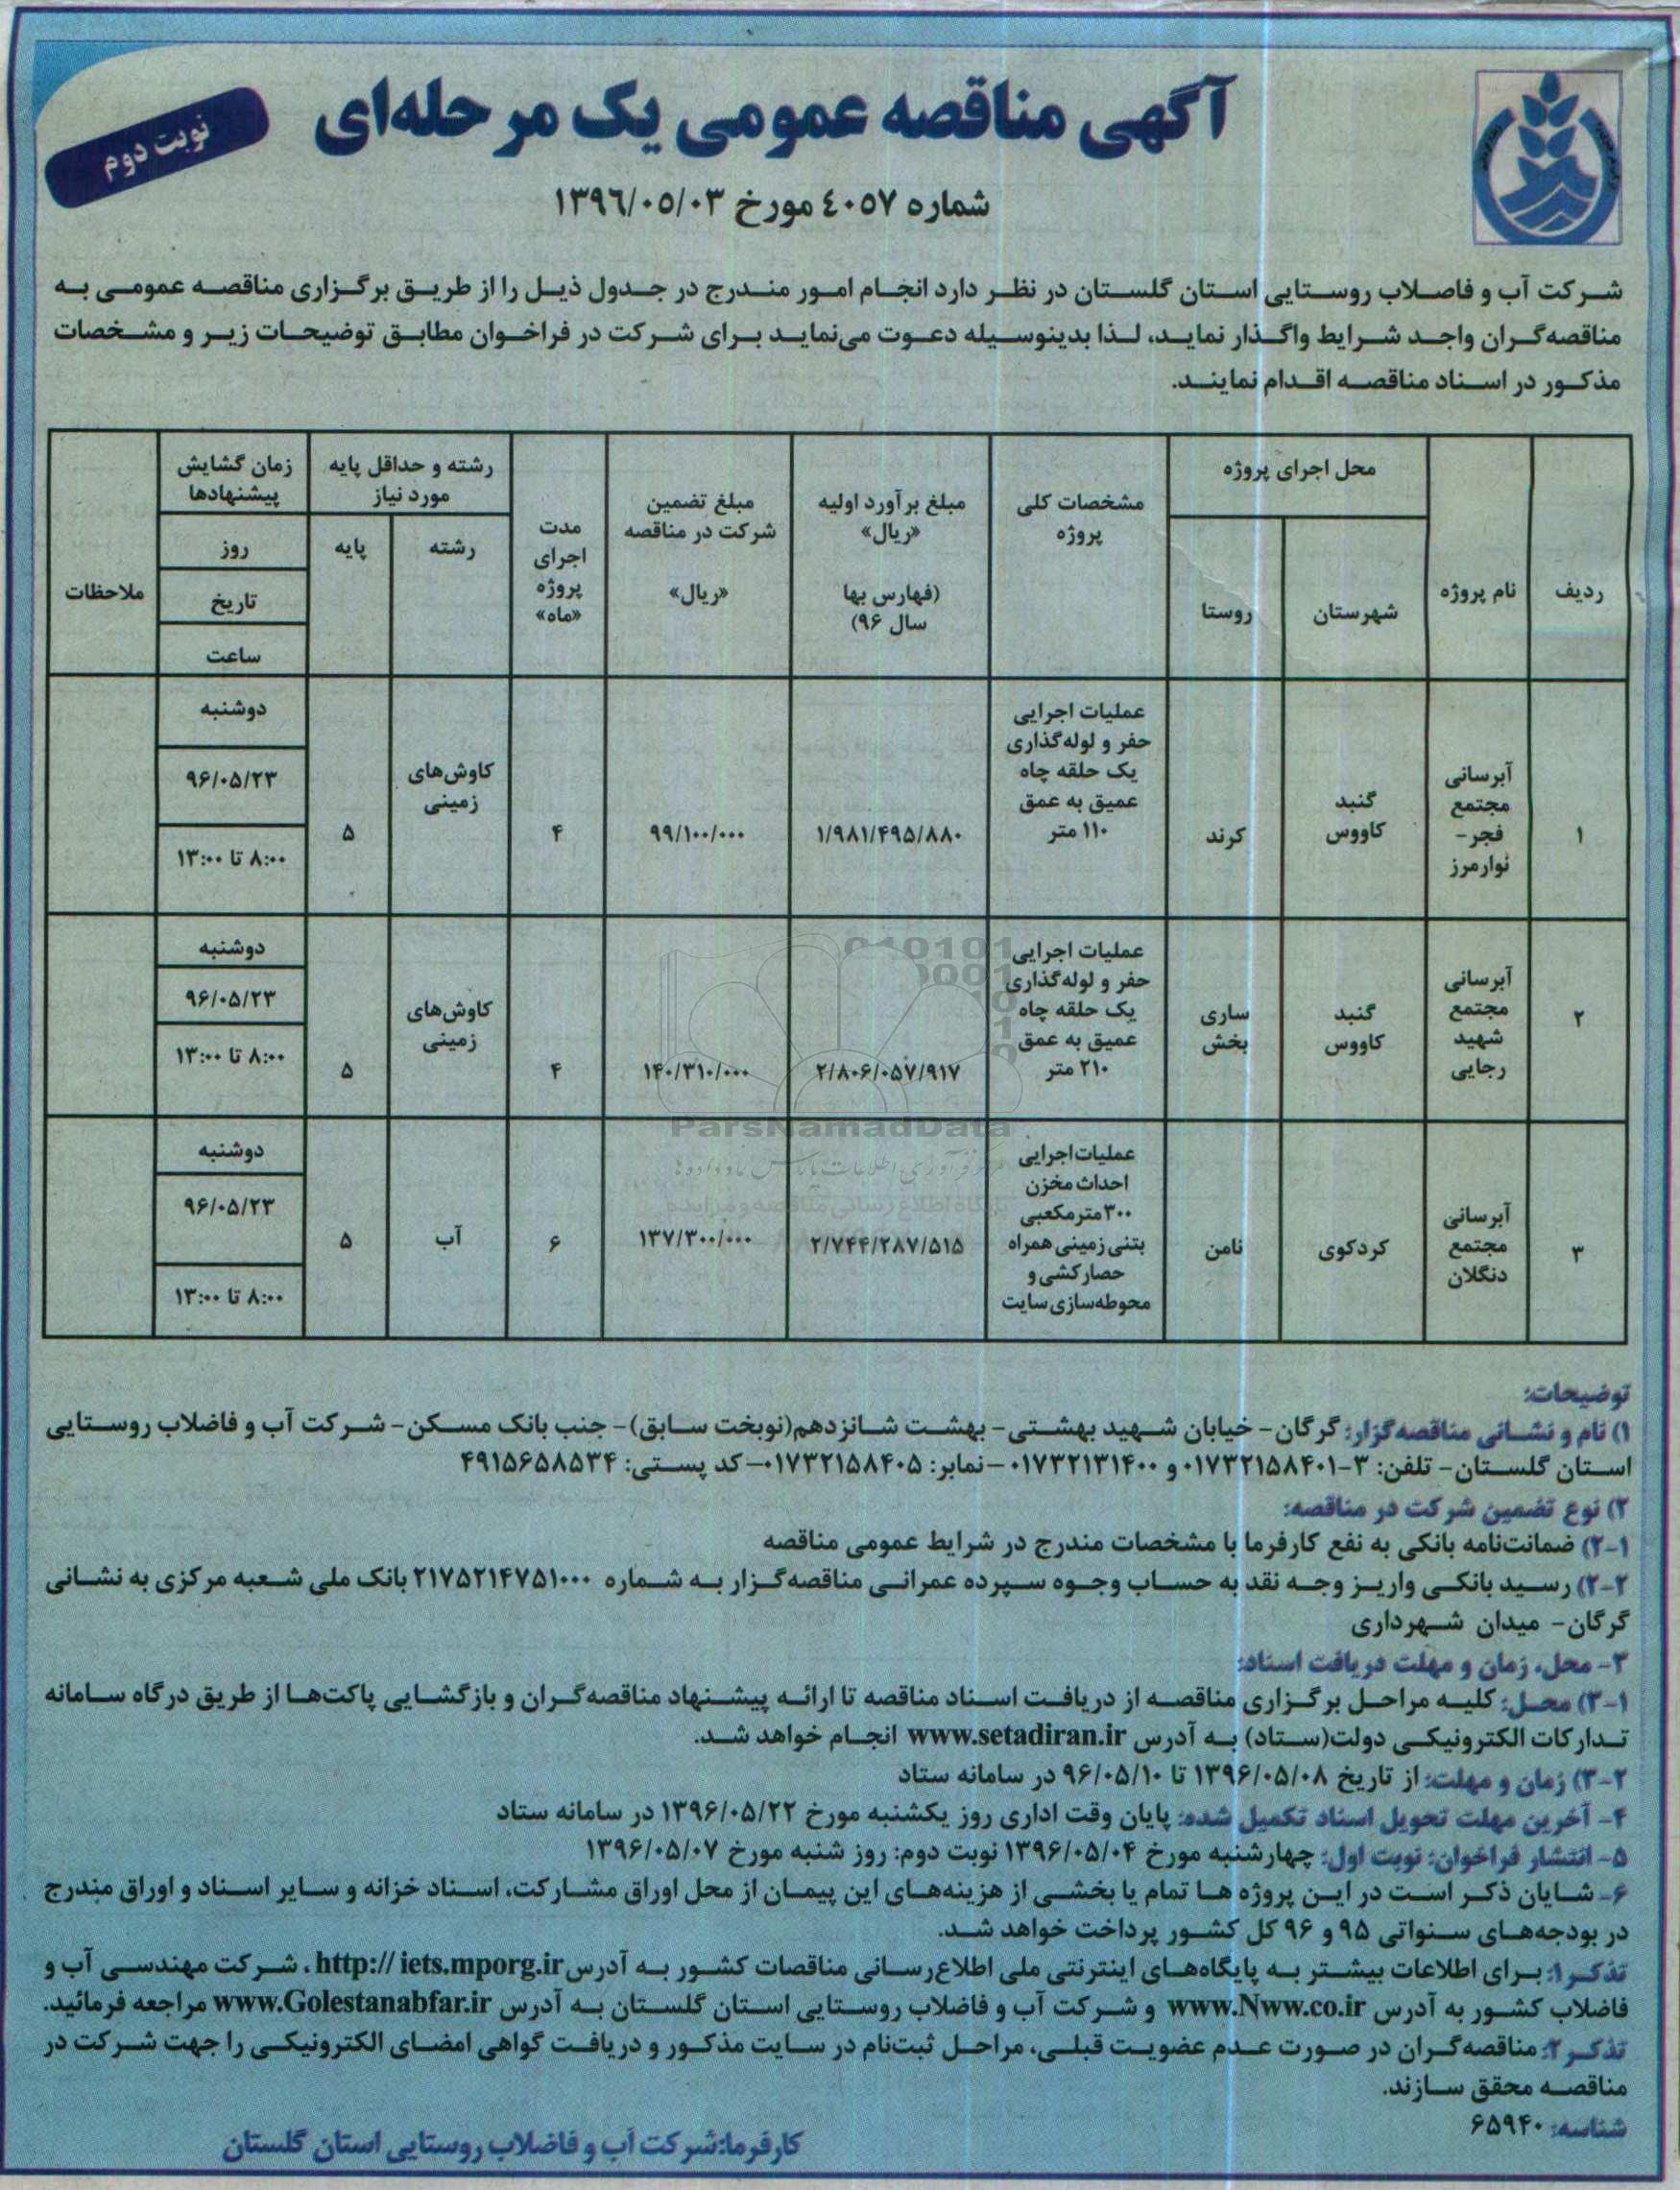 آگهی مناقصه عمومی یک مرحله‌ای
نوبت دوم
شماره ٤٠٥٧ مورخ ١٣٩٦/٠٥/٠٣
شرکت آب و فاضلاب روستایی استان گلستان در نظر دارد انجام امور مندرج در جدول ذیل را از طریق برگزاری مناقصه عمومی به
مناقصه‌گران واجد شرایط واگذار نماید، لذا بدینوسیله دعوت می‌نماید برای شرکت در فراخوان مطابق توضیحات زیر و مشخصات
مذکور در اسناد مناقصه اقدام نمایند.
ردیف
نام پروژه
محل اجرای پروژه
شهرستان
روستا
مشخصات کلی
پروژه
مبلغ برآورد اولیه
«ریال»
(فهارس بها
سال ۹۶)
مبلغ تضمین
شرکت در مناقصه
«ریال»
مدت
اجرای
پروژه
«ماه»
رشته و حداقل پایه
مورد نیاز
رشته
پایه
زمان گشایش
پیشنهادها
روز
تاریخ
ساعت
ملاحظات
۱
آبرسانی
مجتمع
فجر-
نوارمرز
گنبد
کاووس
کرند
عملیات اجرایی
حفر و لوله‌گذاری
یک حلقه چاه
عمیق به عمق
۱۱۰ متر
۱/۹۸۱/۴۹۵/۸۸۰
۹۹/۱۰۰/۰۰۰
۴
کاوش‌های
زمینی
۵
دوشنبه
۹۶/۰۵/۲۳
۸:۰۰ تا ۱۳:۰۰
۲
آبرسانی
مجتمع
شهید
رجایی
گنبد
کاووس
ساری
بخش
عملیات اجرایی
حفر و لوله‌گذاری
یک حلقه چاه
عمیق به عمق
۲۱۰ متر
۲/۸۰۶/۰۵۷/۹۱۷
۱۴۰/۳۱۰/۰۰۰
۴
کاوش‌های
زمینی
۵
دوشنبه
۹۶/۰۵/۲۳
۸:۰۰ تا ۱۳:۰۰
۳
آبرسانی
مجتمع
دنگلان
کردکوی
نامن
عملیات اجرایی
احداث مخزن
۳۰۰ مترمکعبی
بتنی زمینی همراه
حصارکشی و
محوطه‌سازی سایت
۲/۷۴۴/۲۸۷/۵۱۵
۱۳۷/۳۰۰/۰۰۰
۶
آب
۵
دوشنبه
۹۶/۰۵/۲۳
۸:۰۰ تا ۱۳:۰۰
ParsNamadData
توضیحات:
۱) نام و نشانی مناقصه‌گزار: گرگان- خیابان شهید بهشتی- بهشت شانزدهم(نوبخت سابق)- جنب بانک مسکن- شرکت آب و فاضلاب روستایی
استان گلستان- تلفن: ۳-۰۱۷۳۲۱۵۸۴۰۱ و ۰۱۷۳۲۱۳۱۴۰۰ -نمابر: ۰۱۷۳۲۱۵۸۴۰۵- کد پستی: ۴۹۱۵۶۵۸۵۳۴
۲) نوع تضمین شرکت در مناقصه:
۲-۱) ضمانت‌نامه بانکی به نفع کارفرما با مشخصات مندرج در شرایط عمومی مناقصه
۲-۲) رسید بانکی واریز وجه نقد به حساب وجوه سپرده عمرانی مناقصه‌گزار به شماره ۲۱۷۵۲۱۴۷۵۱۰۰۰ بانک ملی شعبه مرکزی به نشانی
گرگان- میدان شهرداری
۳- محل، زمان و مهلت دریافت اسناد:
۳-۱) محل: کلیه مراحل برگزاری مناقصه از دریافت اسناد مناقصه تا ارائه پیشنهاد مناقصه‌گران و بازگشایی پاکت‌ها از طریق درگاه سامانه
تدارکات الکترونیکی دولت(ستاد) به آدرس www.setadiran.ir انجام خواهد شد.
۳-۲) زمان و مهلت: از تاریخ ۱۳۹۶/۰۵/۰۸ تا ۹۶/۰۵/۱۰ در سامانه ستاد
۴- آخرین مهلت تحویل اسناد تکمیل شده: پایان وقت اداری روز یکشنبه مورخ ۱۳۹۶/۰۵/۲۲ در سامانه ستاد
۵- انتشار فراخوان: نوبت اول: چهارشنبه مورخ ۱۳۹۶/۰۵/۰۴ نوبت دوم: روز شنبه مورخ ۱۳۹۶/۰۵/۰۷
۶- شایان ذکر است در این پروژه ها تمام یا بخشی از هزینه‌های این پیمان از محل اوراق مشارکت، اسناد خزانه و سایر اسناد و اوراق مندرج
در بودجه‌های سنواتی ۹۵ و ۹۶ کل کشور پرداخت خواهد شد.
تذکر ۱: برای اطلاعات بیشتر به پایگاه‌های اینترنتی ملی اطلاع‌رسانی مناقصات کشور به آدرس http:// iets.mporg.ir، شرکت مهندسی آب و
فاضلاب کشور به آدرس www.Nww.co.ir و شرکت آب و فاضلاب روستایی استان گلستان به آدرس www.Golestanabfar.ir مراجعه فرمائید.
تذکر ۲: مناقصه‌گران در صورت عدم عضویت قبلی، مراحل ثبت‌نام در سایت مذکور و دریافت گواهی امضای الکترونیکی را جهت شرکت در
مناقصه محقق سازند.
شناسه: ۶۵۹۴۰
کارفرما:شرکت آب و فاضلاب روستایی استان گلستان